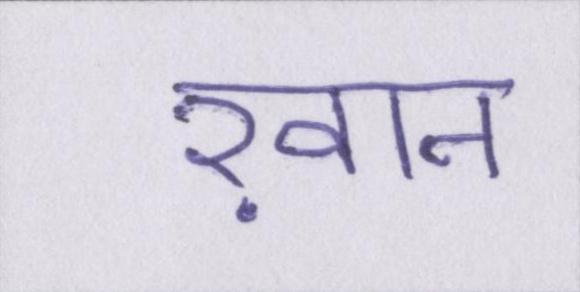 ख़ान